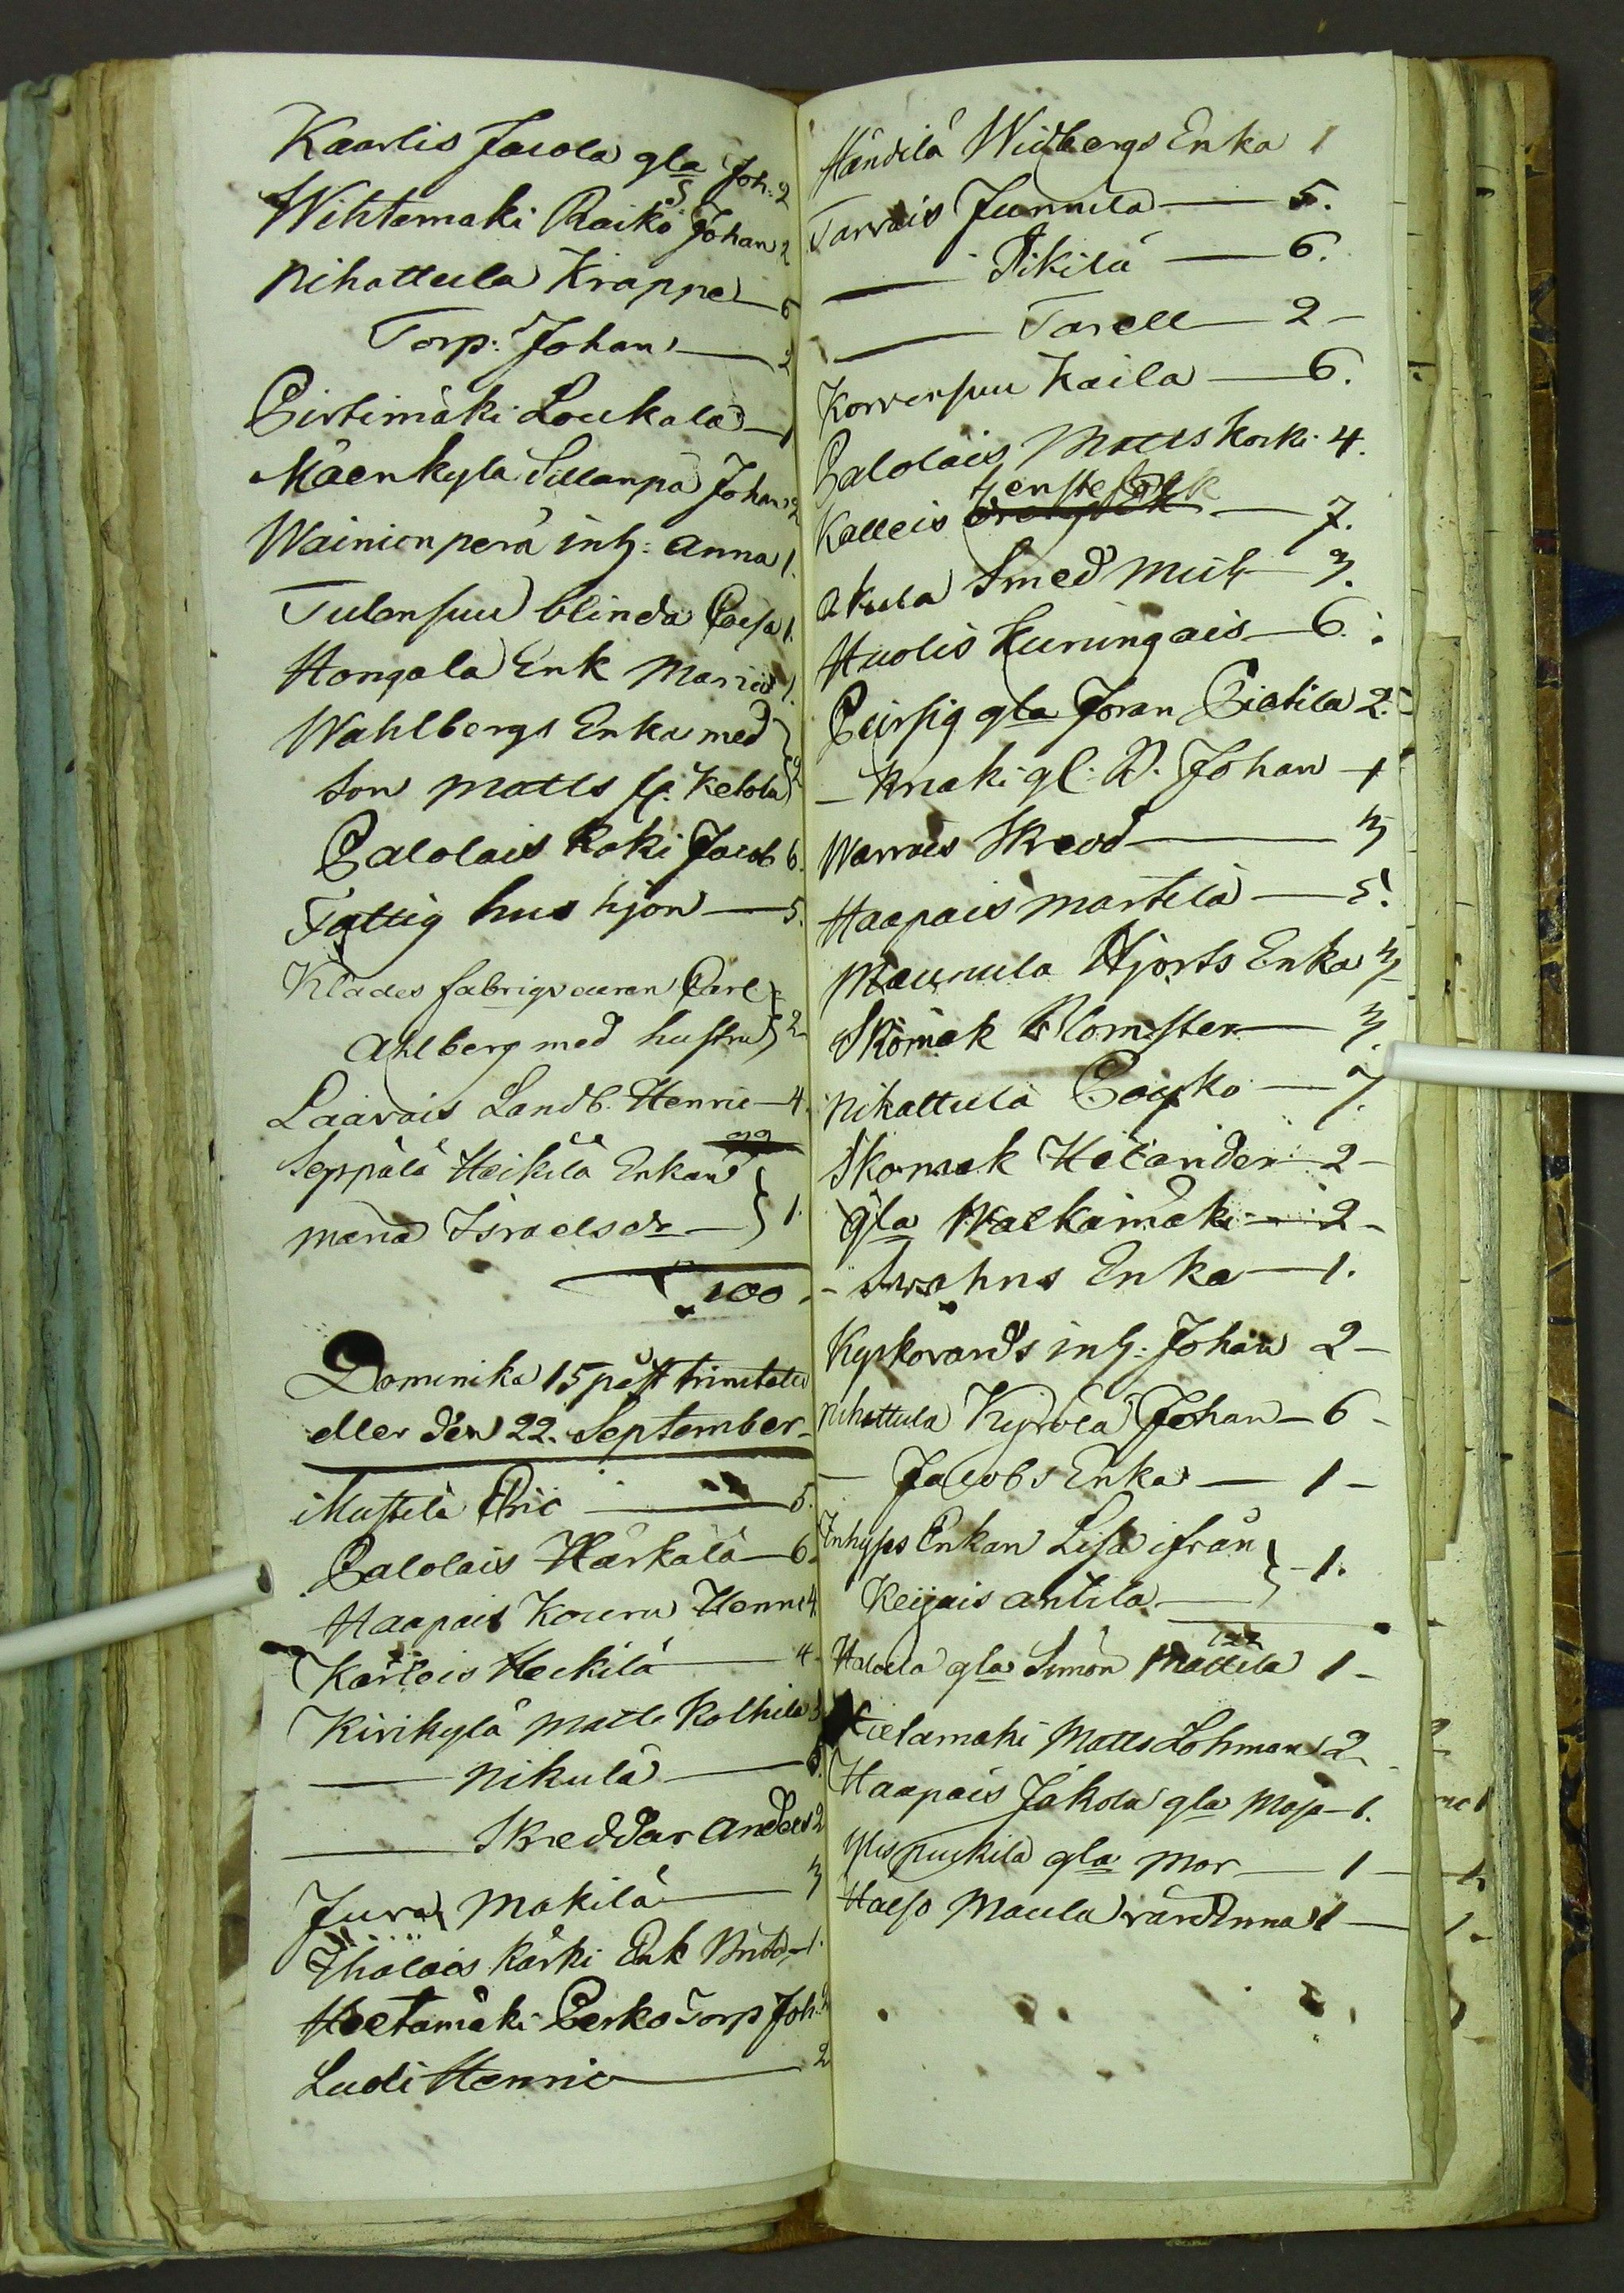 Kaarlis Jacola gla Joh: 2
Wihtamaki Raiko Johan 2
Nihattula Krappe — 6
Torp: Johan — 2
Pirtimäki Loukala — 1
Mäenkyla Sillanpä Johan 2
Wainionperä inh: Anna 1.
Tulensuu blinda Caisa 1.
Hongala Enk Maria 1.
Wahlbergs Enka med
Son Matts fr. Ketola } 2
Palolais Koki Jacob 6.
Fattig hus hjon — 5.
Klädes fabriqveuren Carl
Ahlberg med hustru } 2
Laavais Landb. Henric — 4.
99
Seppälä Heikilä Enkan
Maria Israelsdr — } 1.
100.
Dominika 15 post trinitatis
eller den 22. September.
Mattila Eric — 5.
Palolais Härkälä — 6.
Haapais Kouru Henric 4.
Karleis Heikilä — 4.
Kirikylä Matts Kolkila 3
— Nikula — 6.
— Skreddar Anders 2
Juva Makilä — 3
Ihalais Kärki Enk Brita — 1.
Hietamäki Perko Torp Joh. 2
Ludi Henric — 2
Händilä Widbergs Enka 1
Tarvais Junnila — 5.
— Pikilä — 6.
— Tarell — 2 —
Korvensuu Kaila — 6.
Palolais Matts Korki 4.
tjenstefolk
Kalleis — 7.
Akula Smed Mich 3.
Huolis Kuningais — 6.
Peirsig gla Joran Pietila 2.
— Knaki gl: D. Johan — 1
Warrais Skrod — 3
Haapais Martela — 5.
Maunula Hjorts Enka 3
Skomak Blomsten — 3.
Nihattula Coyko — 7.
Skomak Helander — 2 —
gla Walkämäki — 2 —
— Swahns Enka — 1.
Kyrkovards inh: Johan 2 —
Nihattula Kyrola Johan — 6 —
— Jacobs Enka — 1 —
Inhyses Enkan Lisa ifrån
Keijais Antila — } — 1.
122
Halola gla Simon Mattila 1 —
Hietamaki Matts Lohman 2
Haapais Jakola gla Maja — 1.
Ylis Puckila gla Mor — 1 —
Halso Maula värdinna 1 —